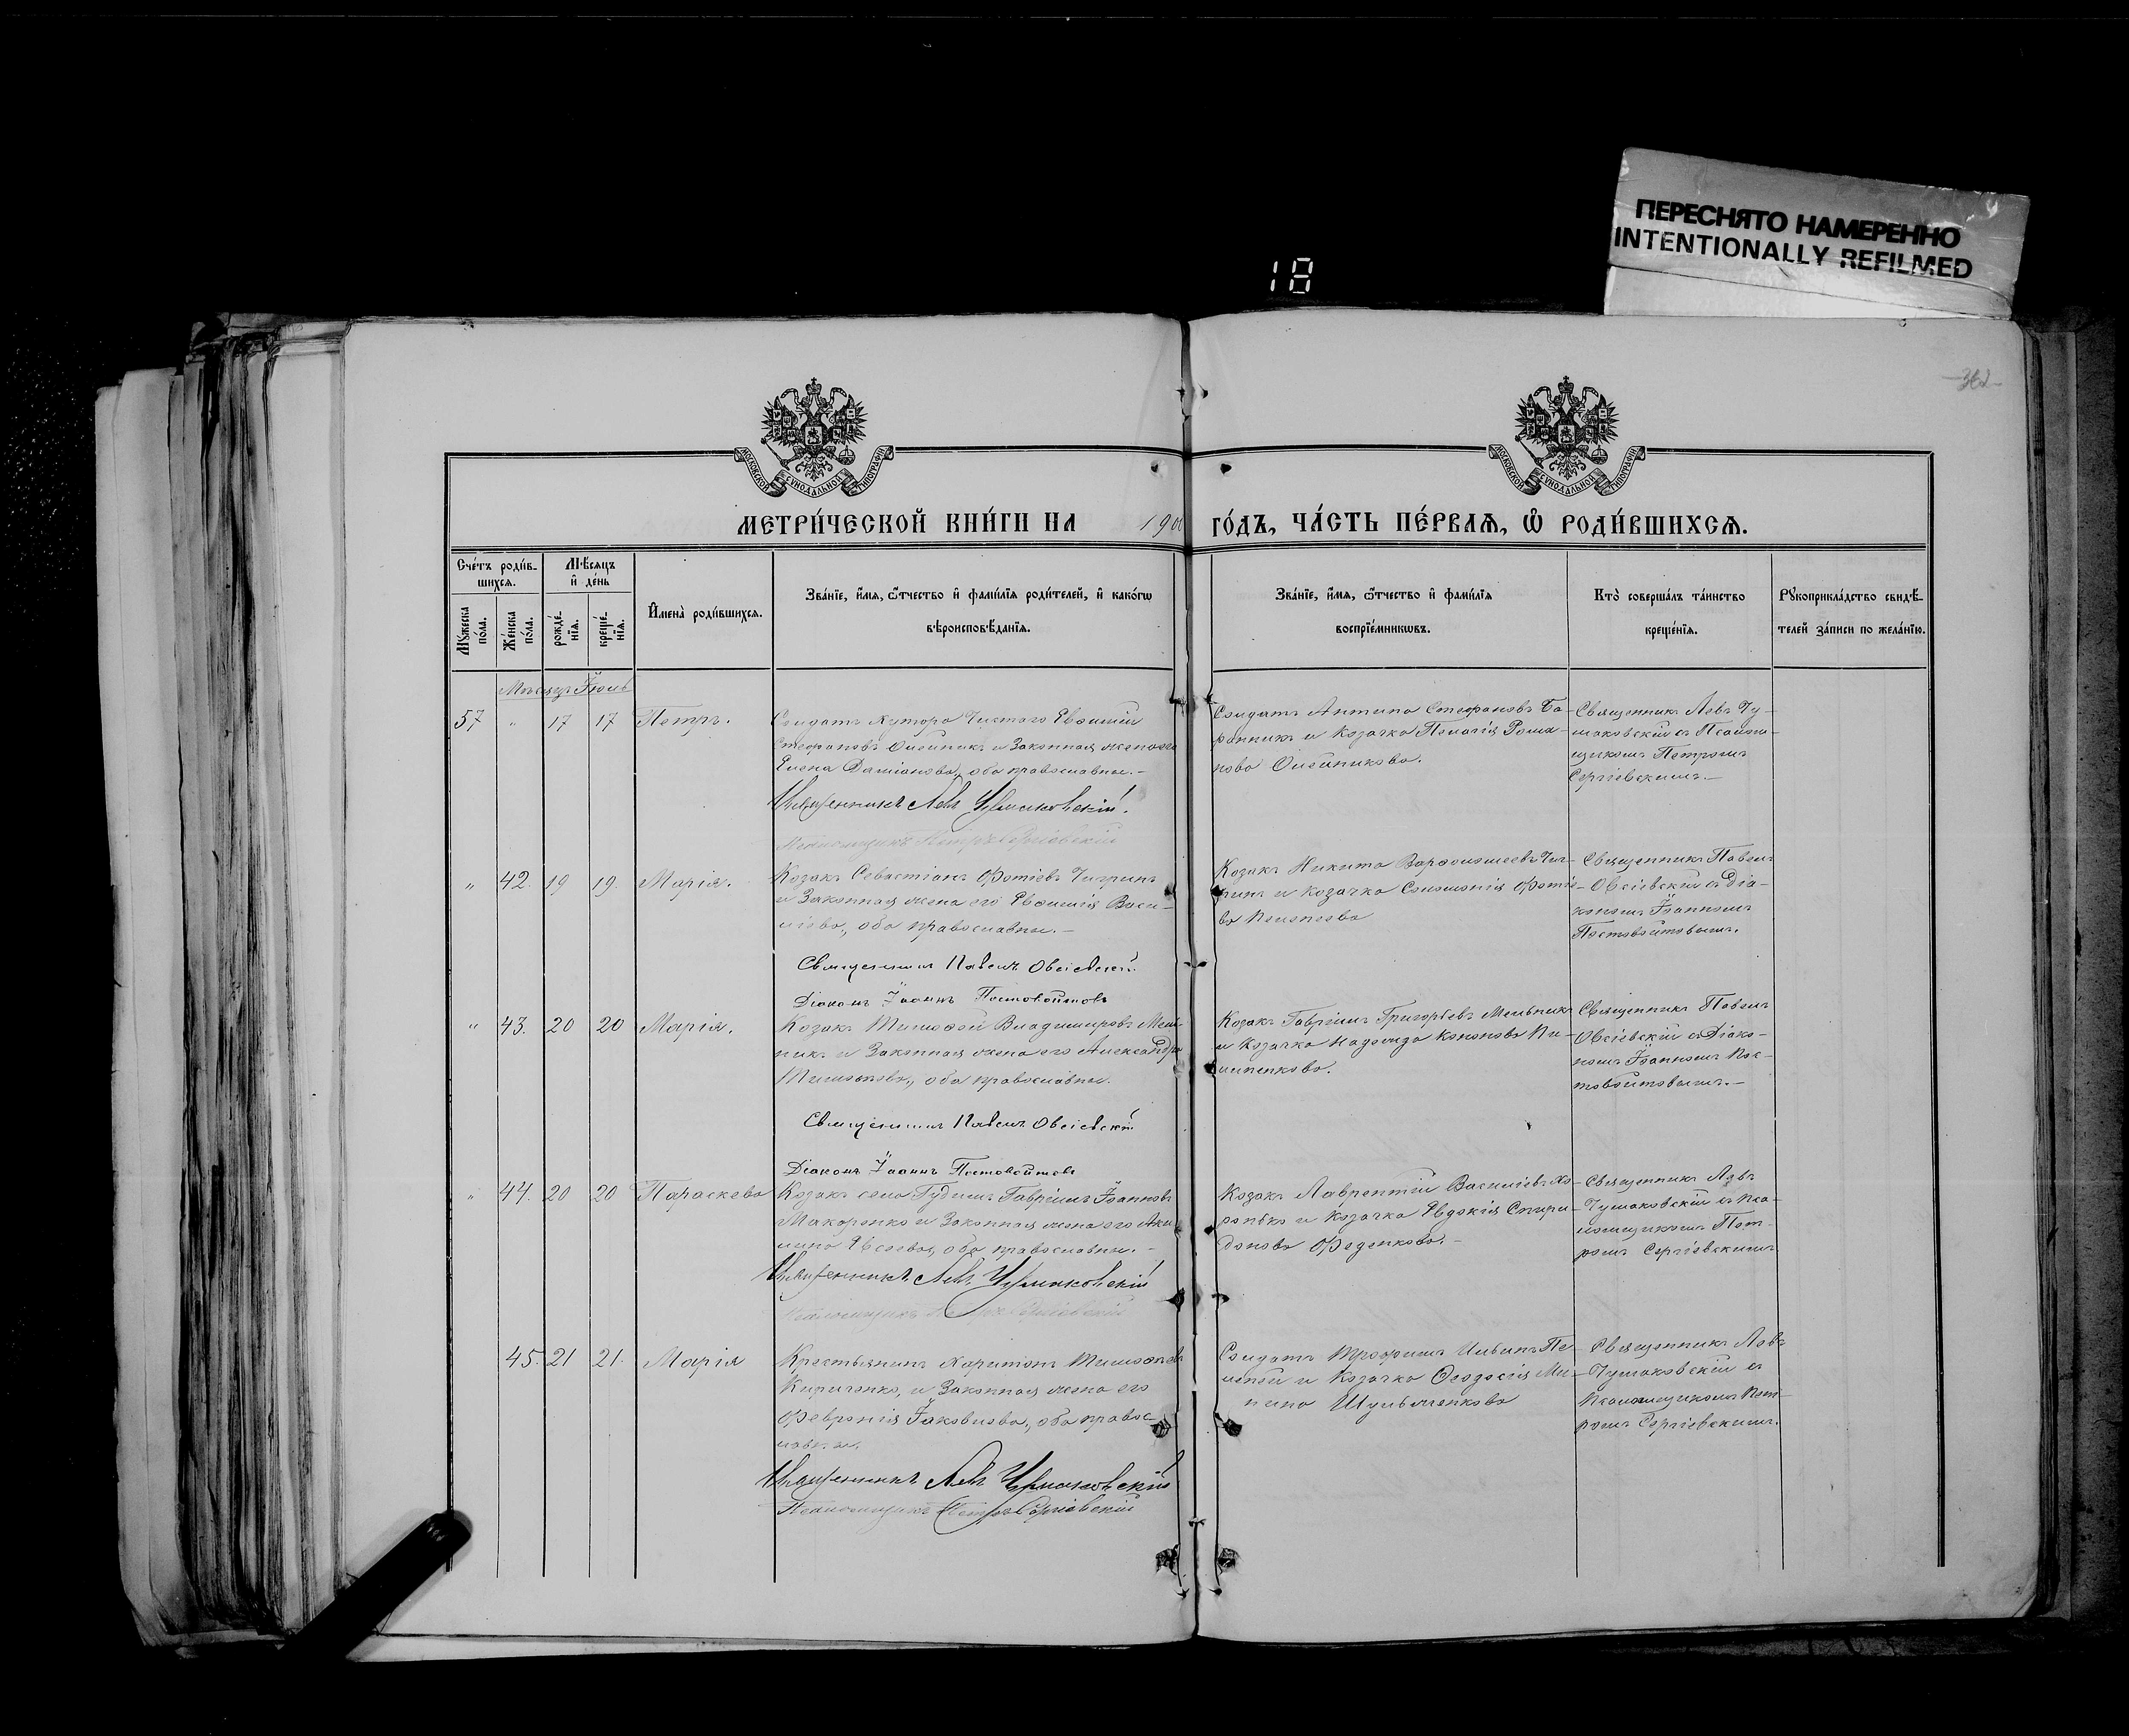 ПЕРЕСНЯТО НАМЕРЕННО
INTENTIONALLY REFILMED
18
362
МОСКОВСКОЙ СѴНОДАЛЬНОЙ ТИПОГРАФІИ
МОСКОВСКОЙ СѴНОДАЛЬНОЙ ТИПОГРАФІИ
МЕТРИ́ЧЕСКОЙ КНИ́ГИ НА 190
ГО́ДЪ, ЧА́СТЬ ПЕ́РВАѦ, Ѽ РОДИ́ВШИХСѦ.
Сче́тъ роди́в-
шихсѧ.
Мꙋ́жеска
по́ла.
Же́нска
по́ла.
Мѣ́сѧцъ
и҆ де́нь
рожде́-
нїѧ.
креще́-
нїѧ.
И҆мена̀ роди́вшихсѧ.
Зва́нїе, и҆́мѧ, ѻ҆́тчество и҆ фами́лїѧ роди́телей, и҆ како́гѡ
вѣроисповѣ́данїѧ.
Зва́нїе, и҆́мѧ, ѻ҆́тчество и҆ фами́лїѧ
воспрїе́мникѡвъ.
Кто̀ соверша́лъ та́инство
креще́нїѧ.
Рꙋкоприкла́дство свидѣ́-
телей за́писи по жела́нїю.
Мѣсяцъ Іюль
57 " 17 17 Петръ.
Солдатъ хутора Чистого Евфимій
Стефановъ Олейникъ и законная жена его
Елена Даміанова, оба православные.-
Священникъ Левъ Чумаковскій.
Псаломщикъ Петръ Сергіевскій
Солдатъ Антипа Стефановъ Ба-
ранникъ и козачка Пелагія Рома-
нова Олейникова.
Священникъ Левъ Чу-
маковскій съ Псалом-
щикомъ Петромъ
Сергіевскимъ.-
" 42. 19 19. Марія.
Козакъ Севастіанъ Фотіевъ Чигринъ
и законная жена его Евфимія Васи-
ліева, оба православные.-
Священникъ Павелъ Овсіевскій.
Діаконъ Іоаннъ Постовойтовъ
Козакъ Никита Варфоломеевъ Чиг-
ринъ и козачка Соломонія Фотіе-
ва
Священникъ Павелъ
Овсіевскій съ Діа-
кономъ Іоанномъ
Постовойтовымъ.
" 43. 20 20 Марія.
Козакъ Тимофей Владимировъ Мель-
никъ и законная жена его Александра
Тимофеева, оба православные.
Священникъ Павелъ Овсіевскій
Діаконъ Іоаннъ Постовойтовъ
Козакъ Гавріилъ Григорьевъ Мельникъ
и козачка Надежда Кононова Пи-
липенкова.
Священникъ Павелъ
Овсіевскій съ Діако-
номъ Іоанномъ Пос-
товойтовымъ.-
" 44. 20 20 Параскева
Козакъ села Гудимъ Гавріилъ Іоанновъ
Макаренко и законная жена его Аки-
лина Евсеева, оба православные.-
Священникъ Левъ Чумаковскій
Псаломщикъ Петръ Сергіевскій
Козакъ Лаврентій Василіевъ Хо-
ронько и козачка Евдокія Спири-
донова Феденкова.-
Священникъ Левъ
Чумаковскій съ Пса-
ломщикомъ Пет-
ромъ Сергіевскимъ
45. 21 21. Марія
Крестьянинъ Харитонъ Тимофеевъ
Кириченко, и законная жена его
Февронія Іаковлева, оба правос-
лавные.
Священникъ Левъ Чумаковскій
Псаломщикъ Петръ Сергіевскій
Солдатъ Трофимъ Ильинъ Пе-
и козачка Феодосія Ми-
нина
Священникъ Левъ
Чумаковскій съ
Псаломщикомъ Пет-
ромъ Сергіевскимъ.